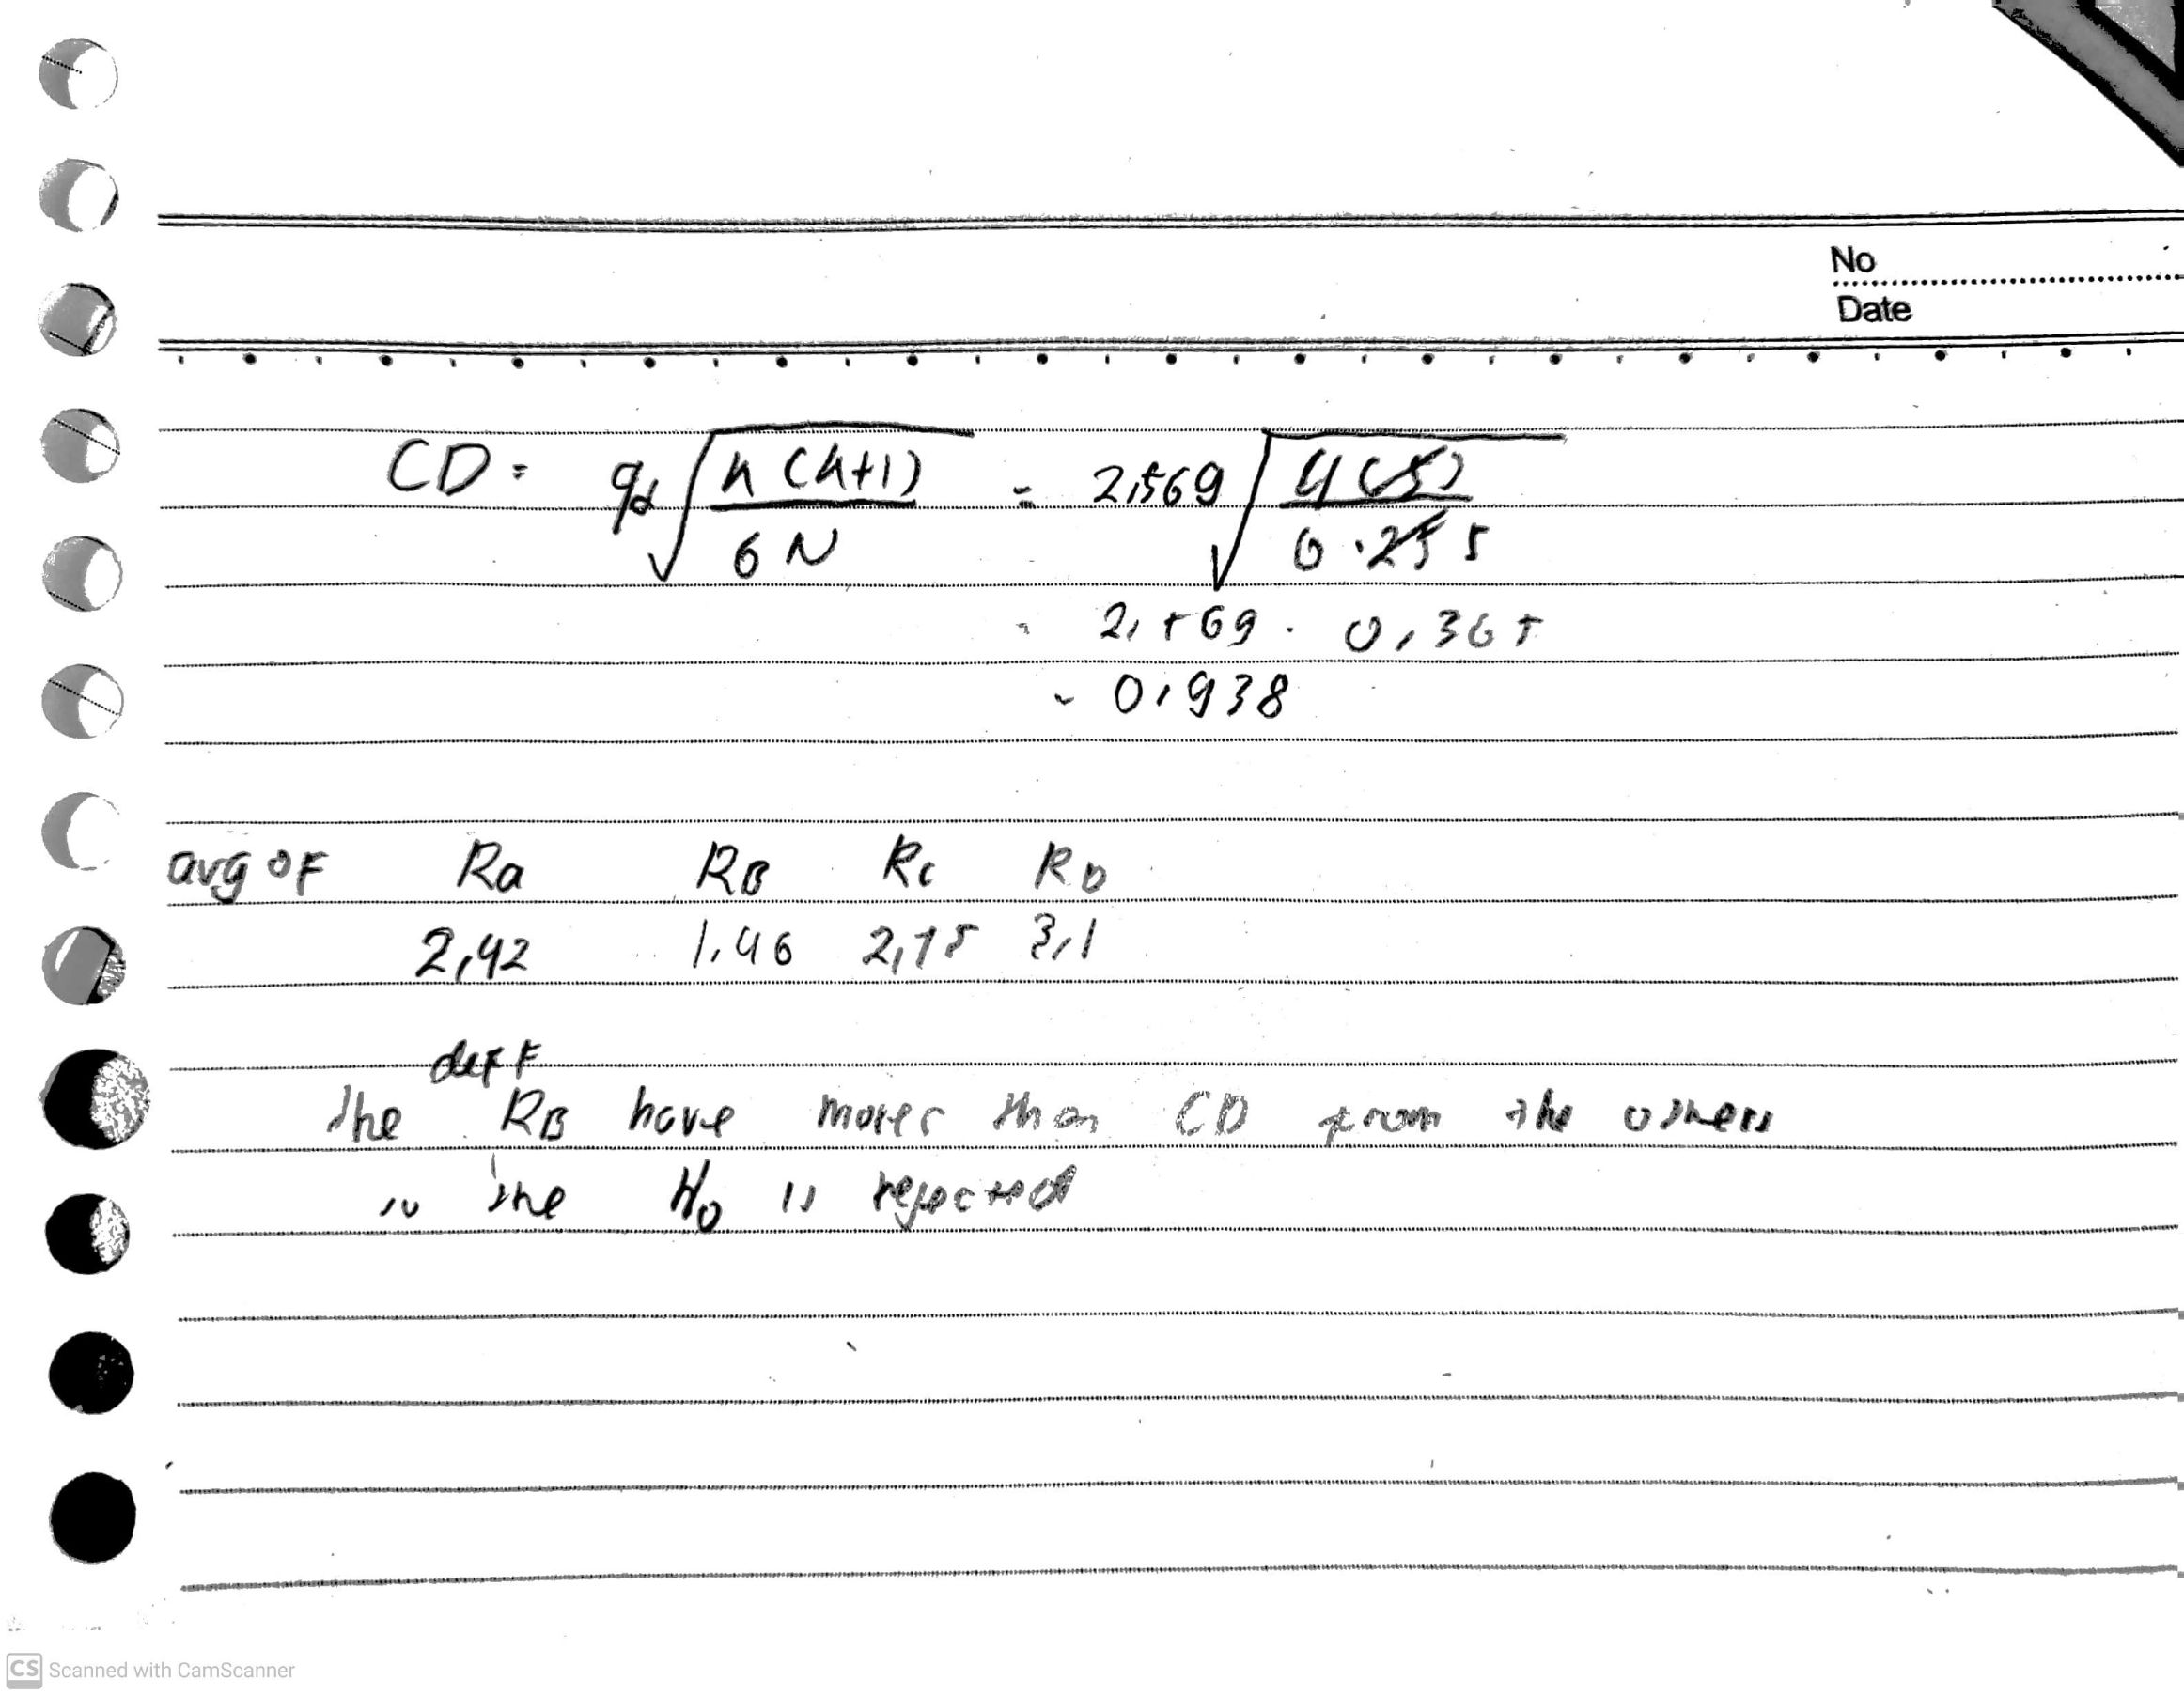 No
Date
CD = qα √ k(k+1) / 6N = 2,569 √ 4(5) / 6.25 5
= 2,569 . 0,365
= 0,938
avg of Ra RB Rc RD
2,42 1,46 2,75 3,1
diff
The RB have more than CD from the others
so the H0 is rejected
CS Scanned with CamScanner